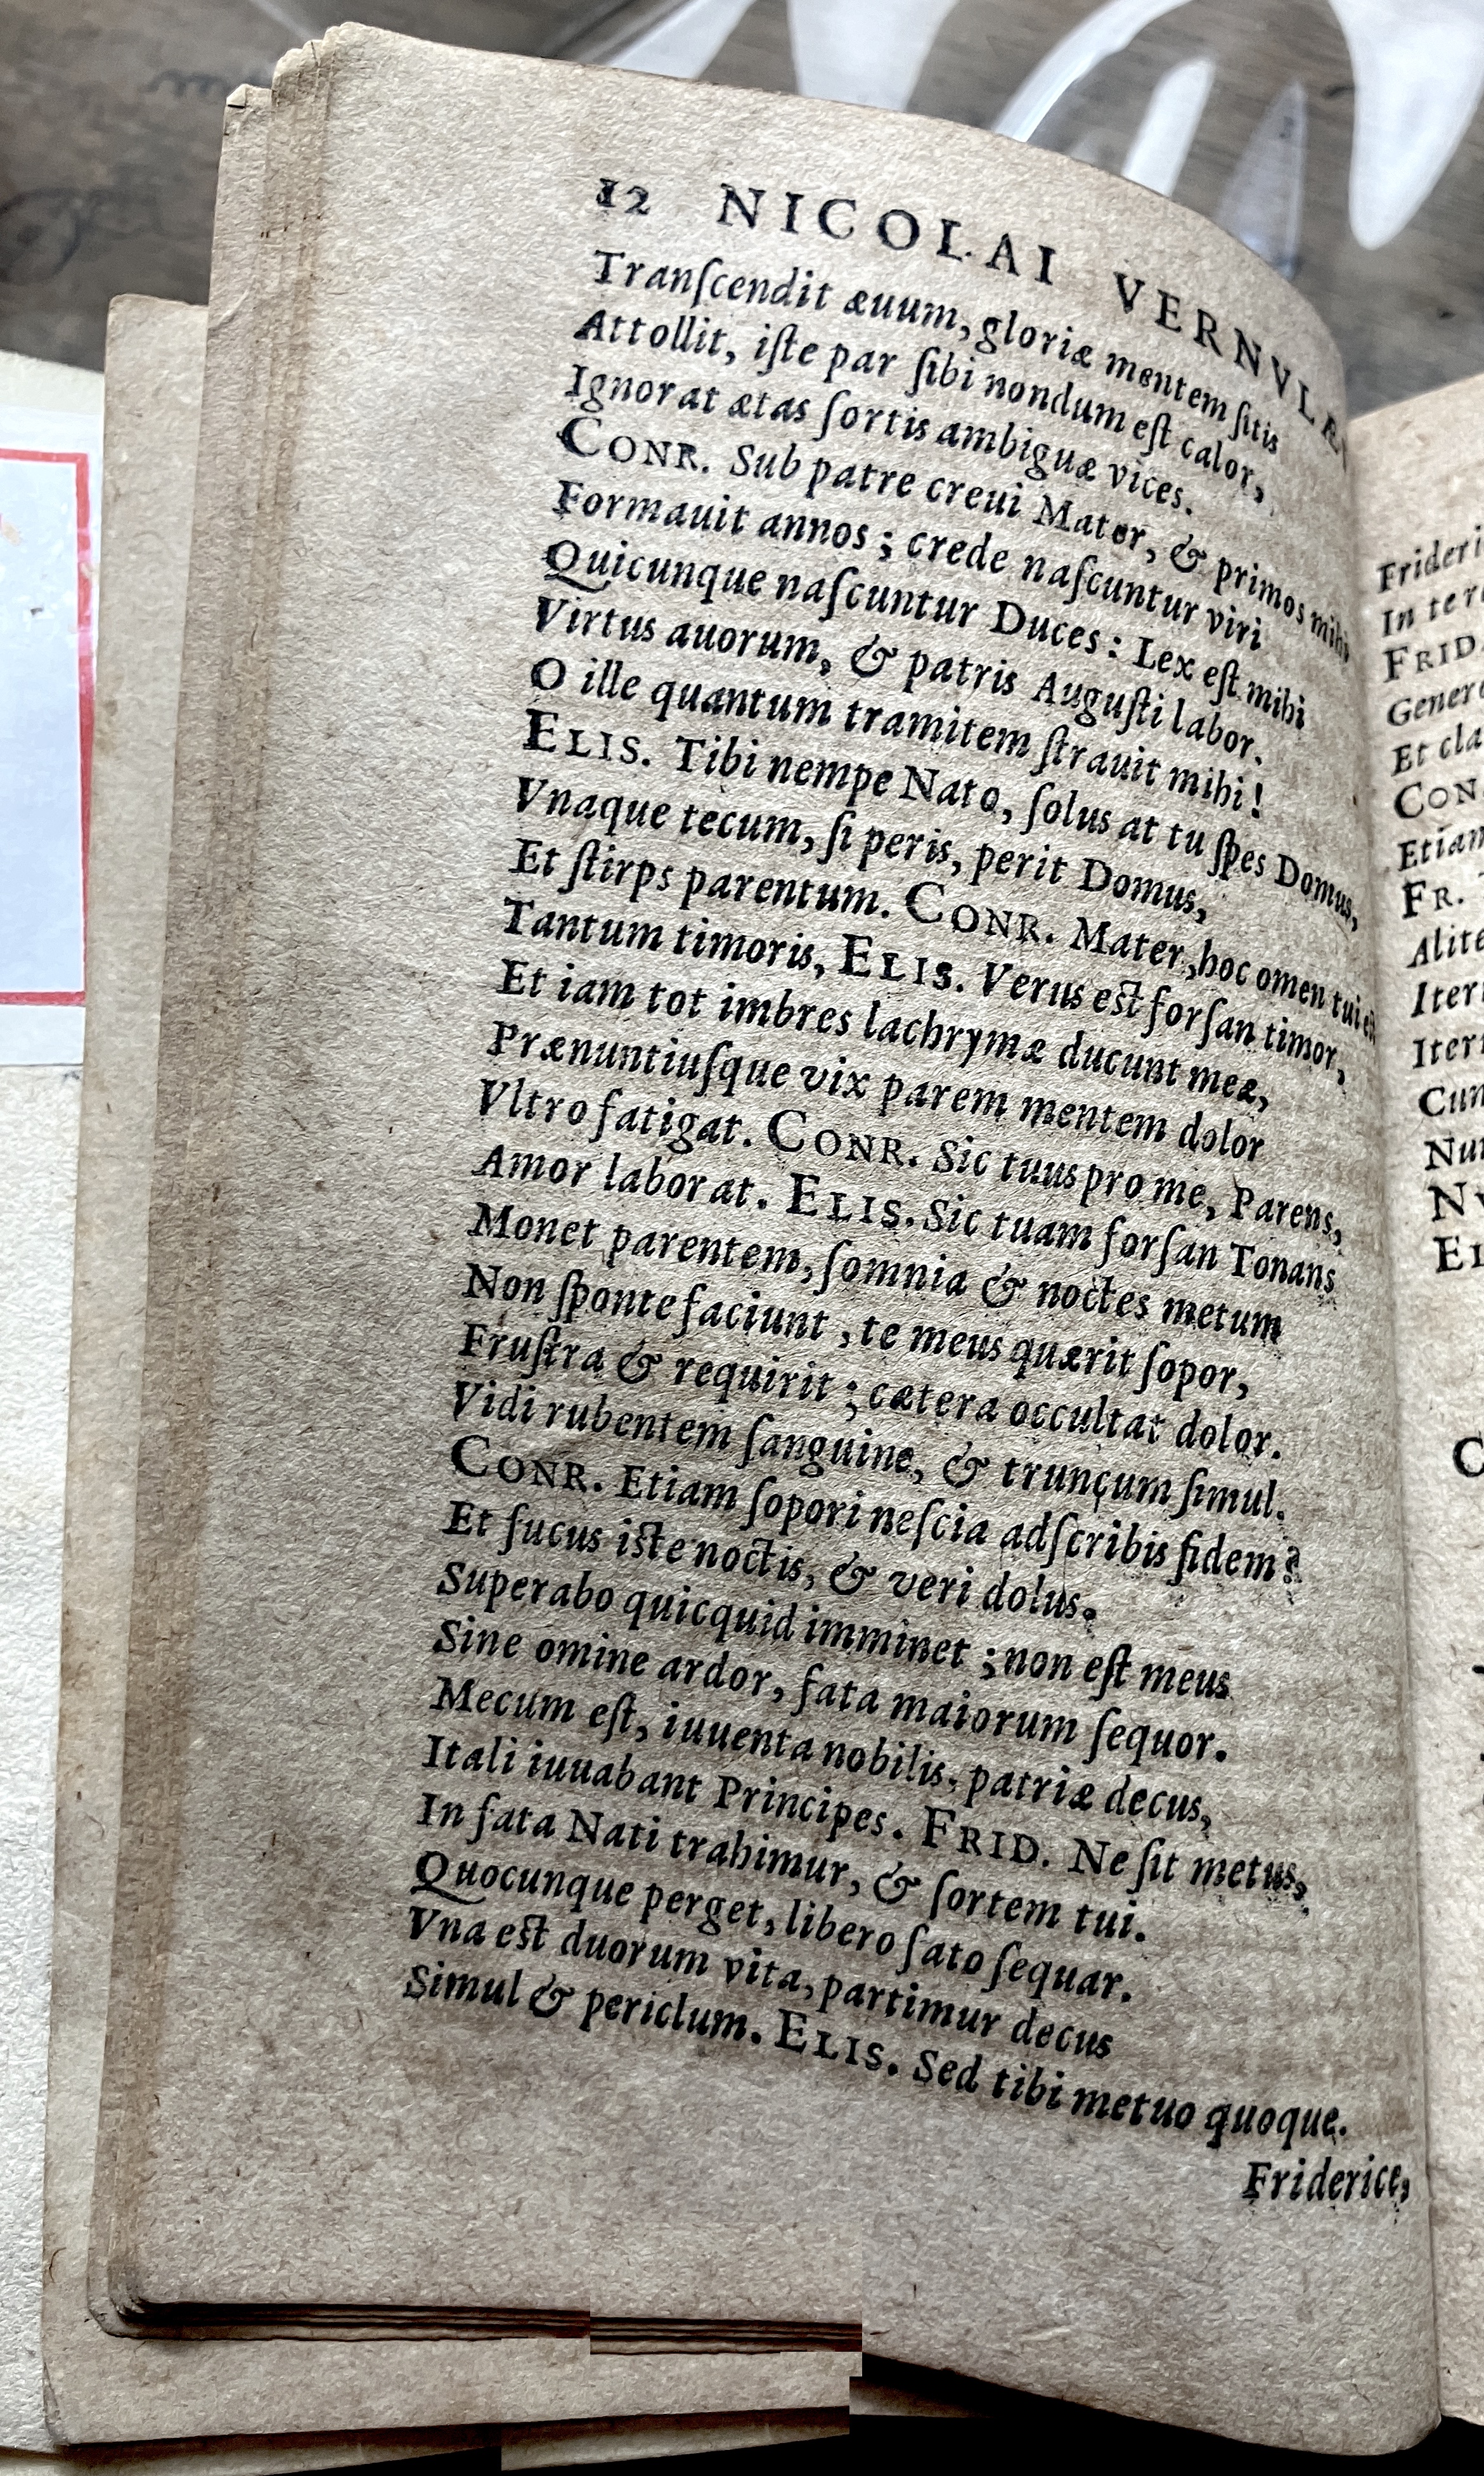 12 NICOLAI VERNVLÆI
Tranſcendit æuum, gloriæ mentem ſitis
Attollit, iſte par ſibi nondum eſt calor,
Ignorat ætas ſortis ambiguæ vices.
CONR. Sub patre creui Mater, & primos mihi
Formauit annos; crede naſcuntur viri
Quicunque naſcuntur Duces: Lex eſt mihi
Virtus auorum, & patris Auguſti labor.
O ille quantum tramitem ſtrauit mihi!
ELIS. Tibi nempe Nato, ſolus at tu ſpes Domus,
Vnaque tecum, ſi peris, perit Domus,
Et ſtirps parentum. CONR. Mater, hoc omen tui eſt
Tantum timoris, ELIS. Verus eſt forſan timor,
Et iam tot imbres lachrymæ ducunt meæ,
Prænuntiuſque vix parem mentem dolor
Vltro fatigat. CONR. Sic tuus pro me, Parens,
Amor laborat. ELIS. Sic tuam forſan Tonans
Monet parentem, ſomnia & noctes metum
Non ſponte faciunt, te meus quærit ſopor,
Fruſtra & requirit; cætera occultat dolor.
Vidi rubentem ſanguine, & truncum ſimul.
CONR. Etiam ſopori neſcia adſcribis fidem?
Et fucus iſte noctis, & veri dolus.
Superabo quicquid imminet; non eſt meus
Sine omine ardor, fata maiorum ſequor.
Mecum eſt, iuuenta nobilis, patriæ decus,
Itali iuuabant Principes. FRID. Ne ſit metus,
In fata Nati trahimur, & ſortem tui.
Quocunque perget, libero ſato ſequar.
Vna eſt duorum vita, partimur decus
Simul & periclum. ELIS. Sed tibi metuo quoque.
Friderice,
In te
FRID.
Et cla
CON
Etiam
FR.